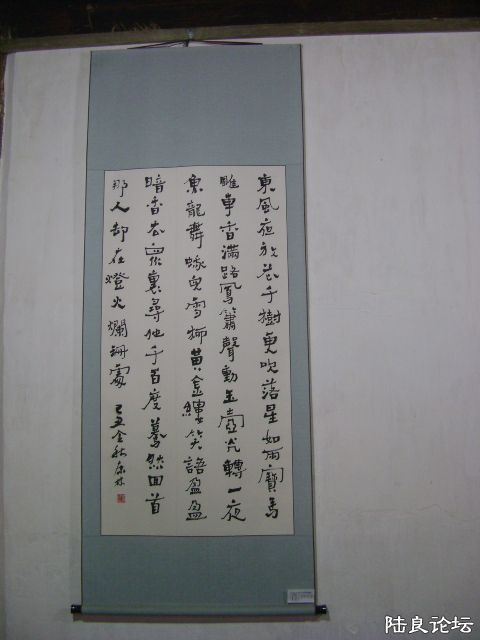 東風夜放花千樹更吹落星如雨寶馬
雕車香滿路鳳簫聲動玉壺光轉一夜
魚龍舞蛾兒雪柳黃金縷笑語盈盈
暗香去眾裏尋他千百度驀然回首
那人却在燈火爛珊處 己丑金秋
陆良论坛